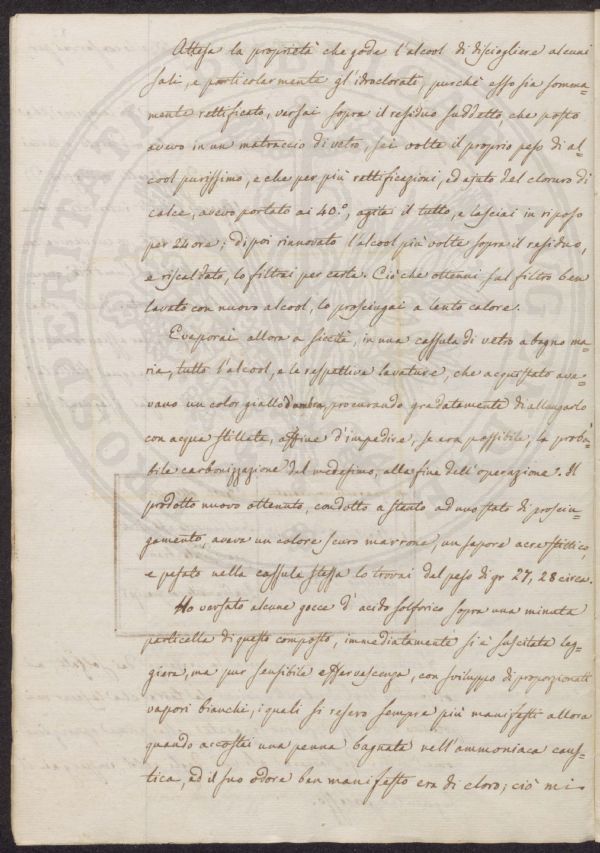 Attesa la proprietà che gode l'alcool di disciogliere alcuni
sali, e particolarmente gl'idroclorati, purchè esso sia somma-
mente rettificato, versai sopra il residuo suddetto, che posto
avevo in un matraccio di vetro, sei volte il proprio peso di al-
cool purissimo, e che per più rettificazioni, ed ajuto del cloruro di
calce, avevo portato ai 40.°, agitai il tutto, e lasciai in riposo
per 24 ore; di poi rinnovato l'alcool più volte sopra il residuo,
e riscaldato, lo filtrai per carta. Ciò che ottenni sul filtro ben
lavato con nuovo alcool, lo prosciugai a lento calore.
Evaporai allora a siccità, in una cassula di vetro a bagno ma-
ria, tutto l'alcool, e le respettive lavature, che acquistato ave-
vano un color giallo d'ambra, procurando gradatamente di allungarlo
con acqua stillata, affine d'impedire, se era possibile, la proba-
bile carbonizzazione del medesimo, alla fine dell'operazione. Il
prodotto nuovo ottenuto, condotto a stento ad uno stato di prosciu-
gamento, aveva un colore scuro marrone, un sapore acre stittico,
e pesato nella cassula stessa lo trovai del peso di gr 27, 28 circa.
Ho versato alcune gocce d'acido solforico sopra una minuta
particella di questo composto, immediatamente si è suscitata leg-
giera, ma pur sensibile effervescenza, con sviluppo di proporzionati
vapori bianchi, i quali si resero sempre più manifesti allora
quando accostai una penna bagnata nell'ammoniaca caus-
tica, ed il suo odore ben manifesto era di cloro; ciò mi